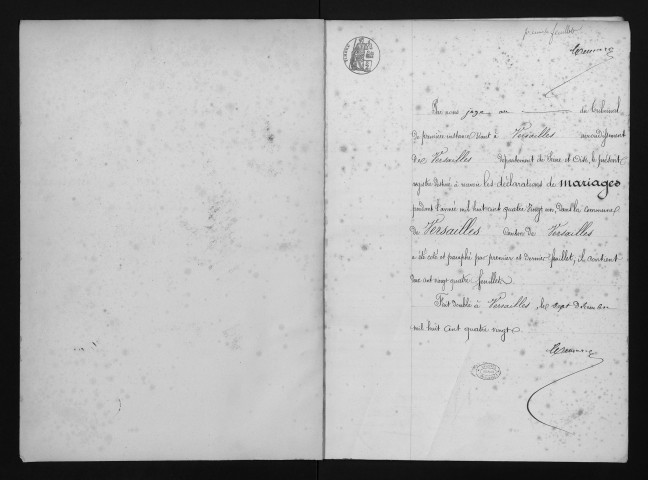 premier feuillet
Par nous juge au du tribunal
de première instance séant à Versailles arrondissement
de Versailles département de Seine et Oise, le présent
registre destiné à recevoir les déclarations de mariages
pendant l'année mil huit cent quatre vingt un, dans la commune
de Versailles Canton de Versailles
a été coté et paraphé par premier et dernier feuillet, il contient
deux cent vingt quatre feuillets
Fait double à Versailles, le sept Décembre
mil huit cent quatre vingt